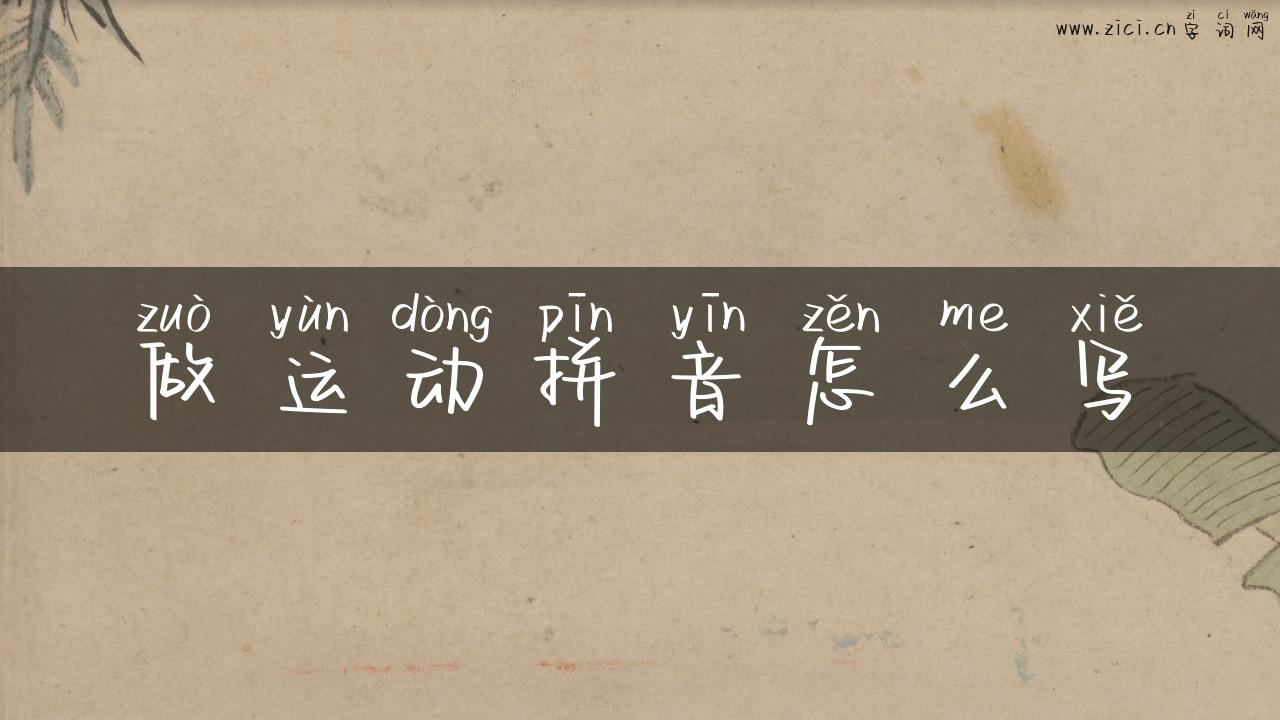 zì cí wǎng
www.zici.cn 字 词 网
zuò yùn dòng pīn yīn zěn me xiě
做 运 动 拼 音 怎 么 写